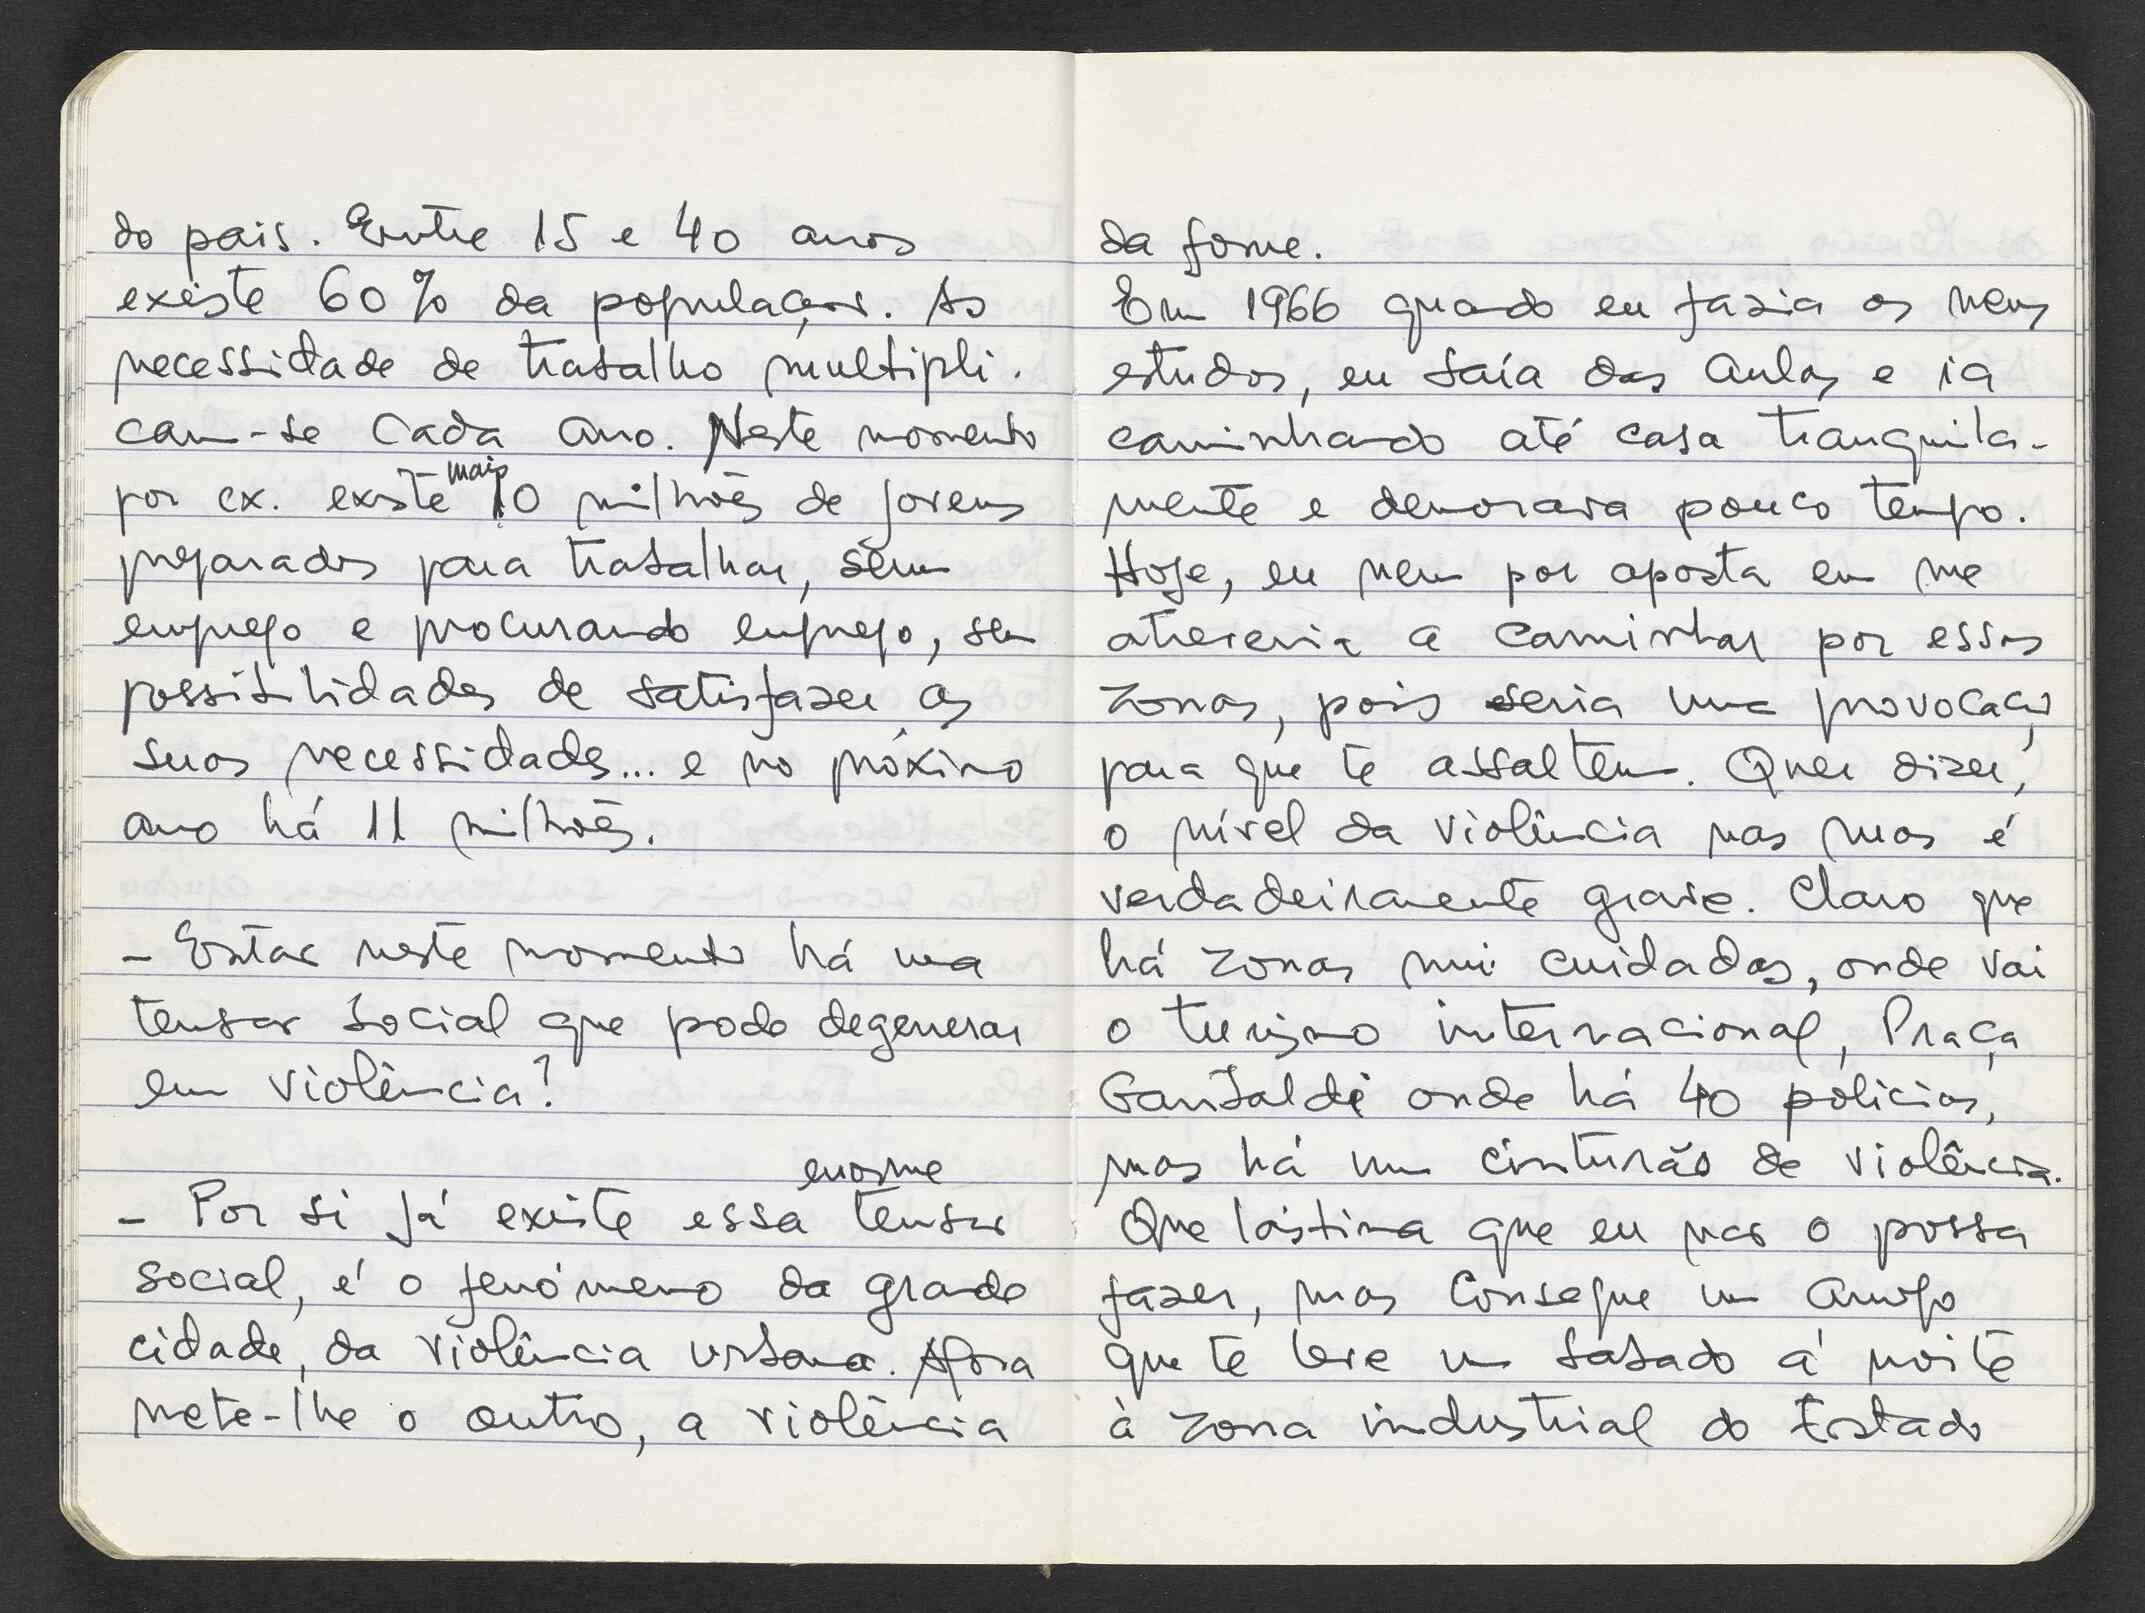 do pais. Entre 15 e 40 anos
existe 60% da população. As
necessidade de trabalho multipli-
cam-se cada ano. Neste momento
mais
por ex. existe 10 milhões de jovens
preparados para trabalhar, sem
emprego e procurando emprego, sem
possibilidades de satisfazer as
suas necessidades... e no próximo
ano há 11 milhões.
- Então neste momento há uma
tensão social que pode degenerar
em violência?
enorme
- Por si já existe essa tensão
social, é o fenómeno da grande
cidade, da violência urbana. Agora
mete-lhe o outro, a violência
da fome.
Em 1966 quando eu fazia os meus
estudos, eu saía das aulas e ia
caminhando até casa tranquila-
mente e demorava pouco tempo.
Hoje, eu nem por aposta em me
atreveria a caminhar por essas
zonas, pois seria uma provocação
para que te assaltem. Quer dizer,
o nível da violência nas ruas é
verdadeiramente grave. Claro que
há zonas mui cuidadas, onde vai
o turismo internacional, Praça
Garibaldi onde há 40 policias,
mas há um cinturão de violência.
Que lástima que eu não o possa
fazer, mas consegue um amigo
que te leve um sabado á noite
à zona industrial do Estado